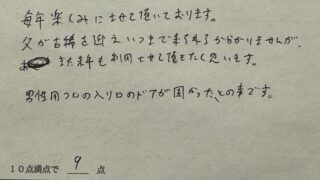 毎年楽しみにさせて頂いております。
父が古稀を迎えいつまで来れるか分かりませんが、
また来年も利用させて頂きたく思います。
男性用フロの入り口のドアが固かった、との事です。
10点満点で 9 点